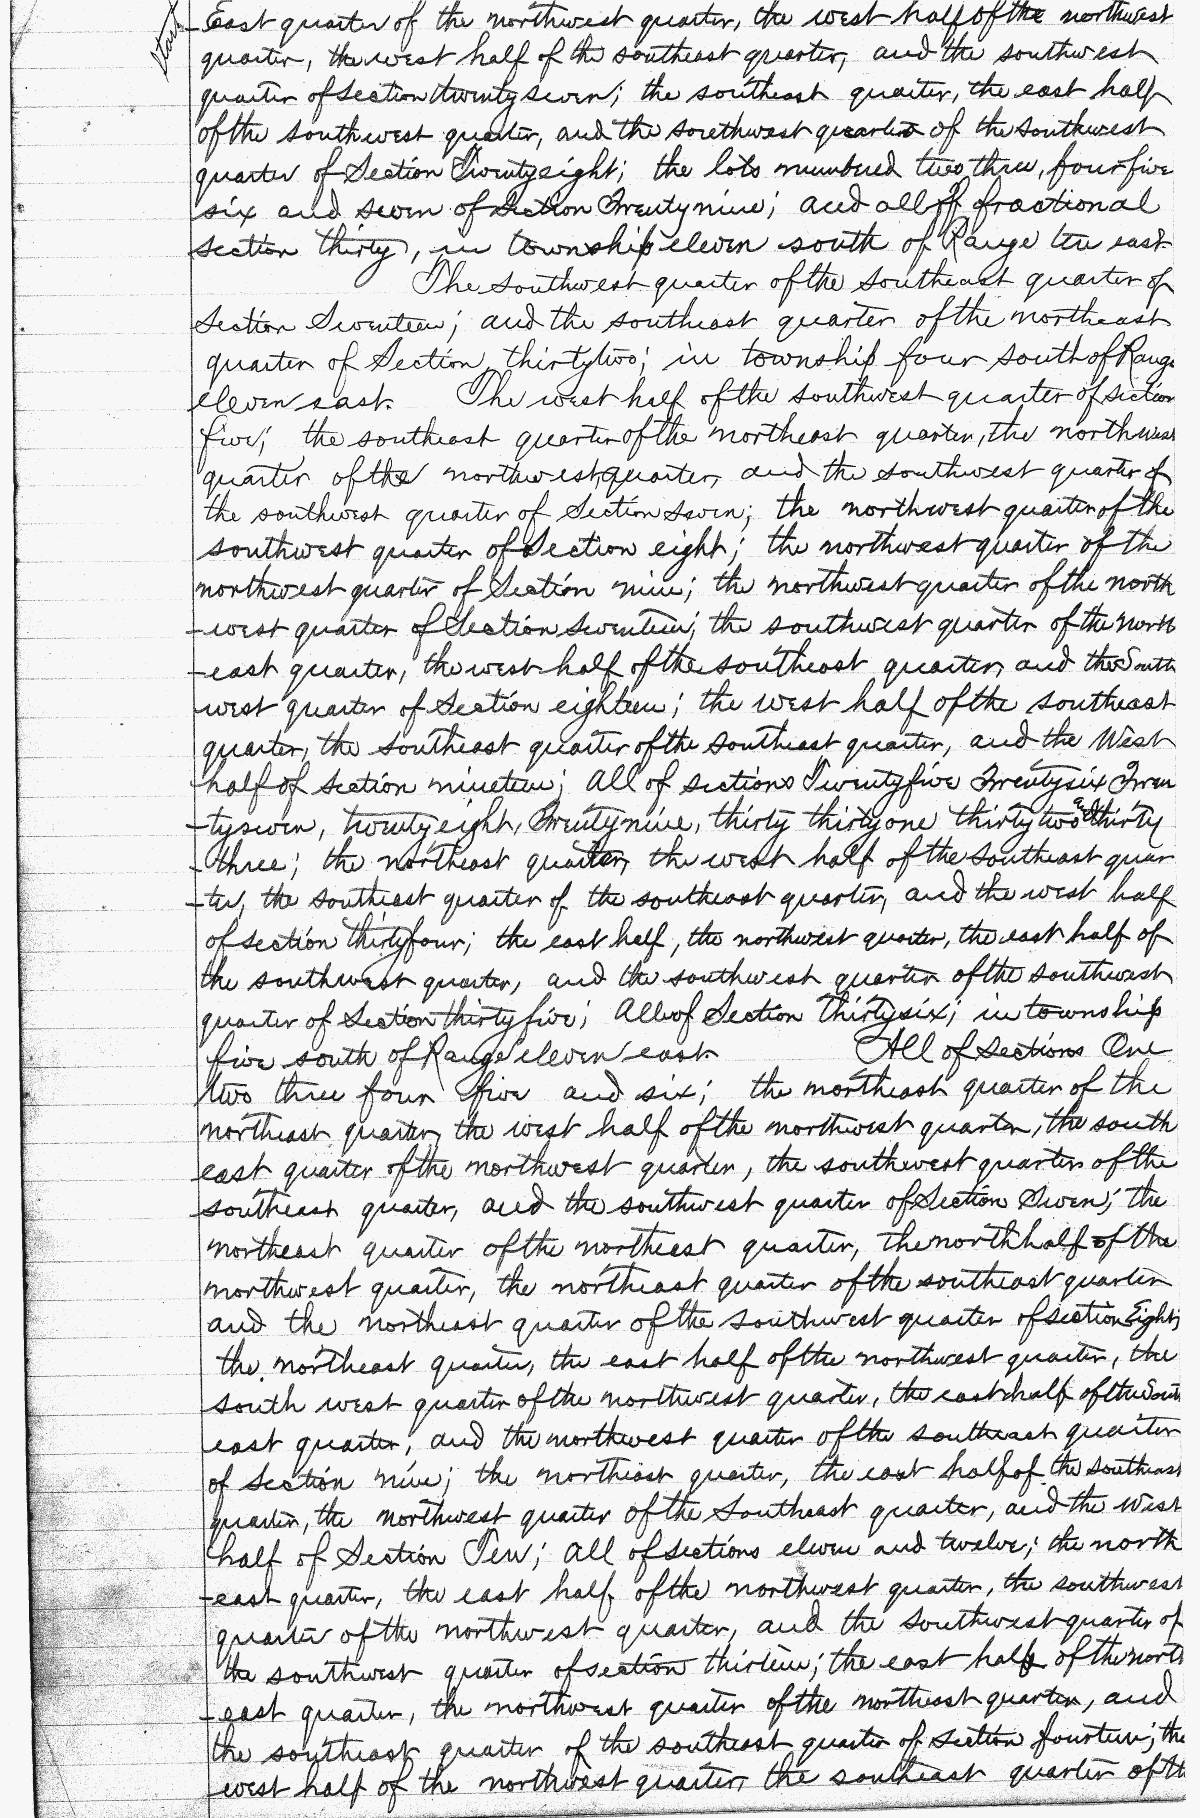 -East quarter of the northwest quarter, the west half of the northwest
quarter, the west half of the southeast quarter, and the southwest
quarter of Section twenty seven; the southeast quarter, the east half
of the southwest quarter, and the southwest quarter of the southwest
quarter of Section Twenty eight; the lots numbered two three, four five
six and seven of Section Twenty nine; and all of fractional
section thirty, in township eleven south of Range ten east.
The southwest quarter of the southeast quarter of
Section Seventeen; and the southeast quarter of the northeast
quarter of Section thirty two; in township four south of Range
eleven east. The west half of the southwest quarter of section
five; the southeast quarter of the northeast quarter, the northwest
quarter of the northwest quarter, and the southwest quarter of
the southwest quarter of Section Seven; the northwest quarter of the
southwest quarter of Section eight; the northwest quarter of the
northwest quarter of Section nine; the northwest quarter of the north
-west quarter of Section Seventeen; the southwest quarter of the North
-east quarter, the west half of the southeast quarter, and the South
west quarter of Section eighteen; the west half of the southeast
quarter, the southeast quarter of the southeast quarter, and the West
half of section nineteen; all of sections Twenty five Twenty six Twen
-ty seven, twenty eight, Twenty nine, thirty thirty one thirty two and thirty
-three; the northeast quarter, the west half of the southeast quar
-ter, the southeast quarter of the southeast quarter, and the west half
of section thirty four; the east half, the northwest quarter, the east half of
the southwest quarter, and the southwest quarter of the southwest
quarter of Section thirty five; All of Section thirty six; in township
five south of Range eleven east. All of Sections One
two three four five and six; the northeast quarter of the
northeast quarter, the west half of the northwest quarter, the south
east quarter of the northwest quarter, the southwest quarter of the
southeast quarter, and the southwest quarter of Section Seven; the
northeast quarter of the northeast quarter, the north half of the
northwest quarter, the northeast quarter of the southeast quarter
and the northeast quarter of the southwest quarter of section Eight;
the northeast quarter, the east half of the northwest quarter, the
south west quarter of the northwest quarter, the east half of the South
east quarter, and the northwest quarter of the southeast quarter
of Section nine; the northeast quarter, the east half of the southeast
quarter, the northwest quarter of the Southeast quarter, and the West
half of Section Ten; all of sections eleven and twelve; the north
-east quarter, the east half of the northwest quarter, the southwest
quarter of the northwest quarter, and the southwest quarter of
the southwest quarter of section thirteen; the east half of the north
-east quarter, the northwest quarter of the northeast quarter, and
the southeast quarter of the southeast quarter of section fourteen; the
west half of the northwest quarter, the southeast quarter of the